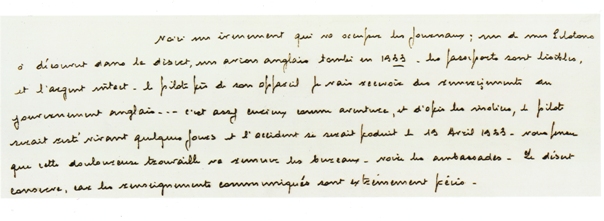 Voici un événement qui va occuper les journaux ; un de mes Pelotons
a découvert dans le désert, un avion anglais tombé en 1933 - les passeports sont lisibles,
et l'argent intact - le pilote près de son appareil je vais recevoir des renseignements du
gouvernement anglais --- c'est assez curieux comme aventure, et d'après les indices, le pilote
serait resté vivant quelques jours et l'accident se serait produit le 13 Avril 1933 - vous pensez
que cette douloureuse trouvaille va remuer les bureaux - voire les ambassades - Le désert
conserve, car les renseignements communiqués sont extrêmement précis -